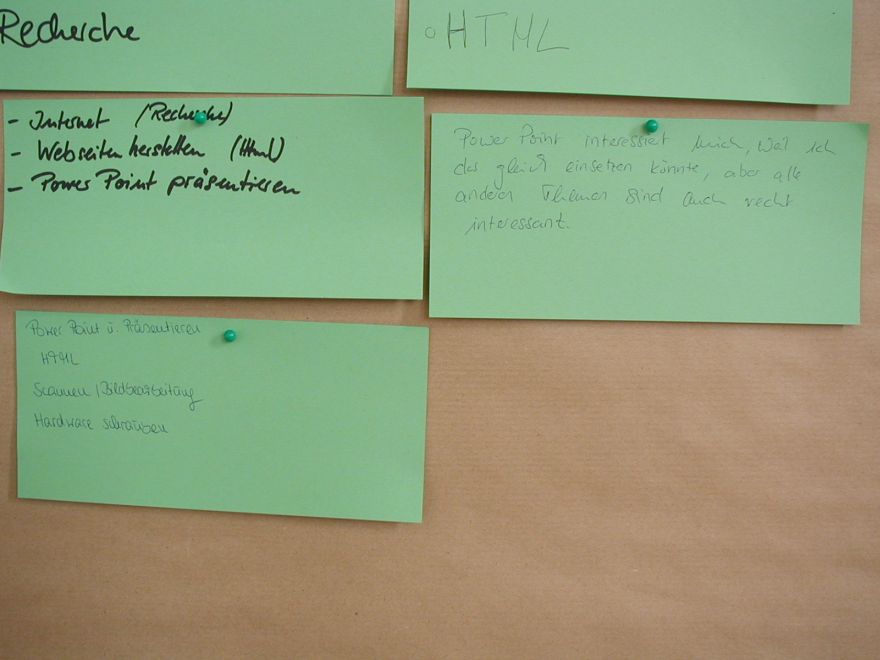 Recherche
○ HTML
- Internet (Recherche)
- Webseiten herstellen (Html)
- Power Point präsentieren
Power Point interessiert mich, weil ich
das gleich einsetzen könnte, aber alle
anderen Themen sind auch recht
interessant.
Power Point u. Präsentieren
HTML
Scannen / Bildbearbeitung
Hardware schrauben